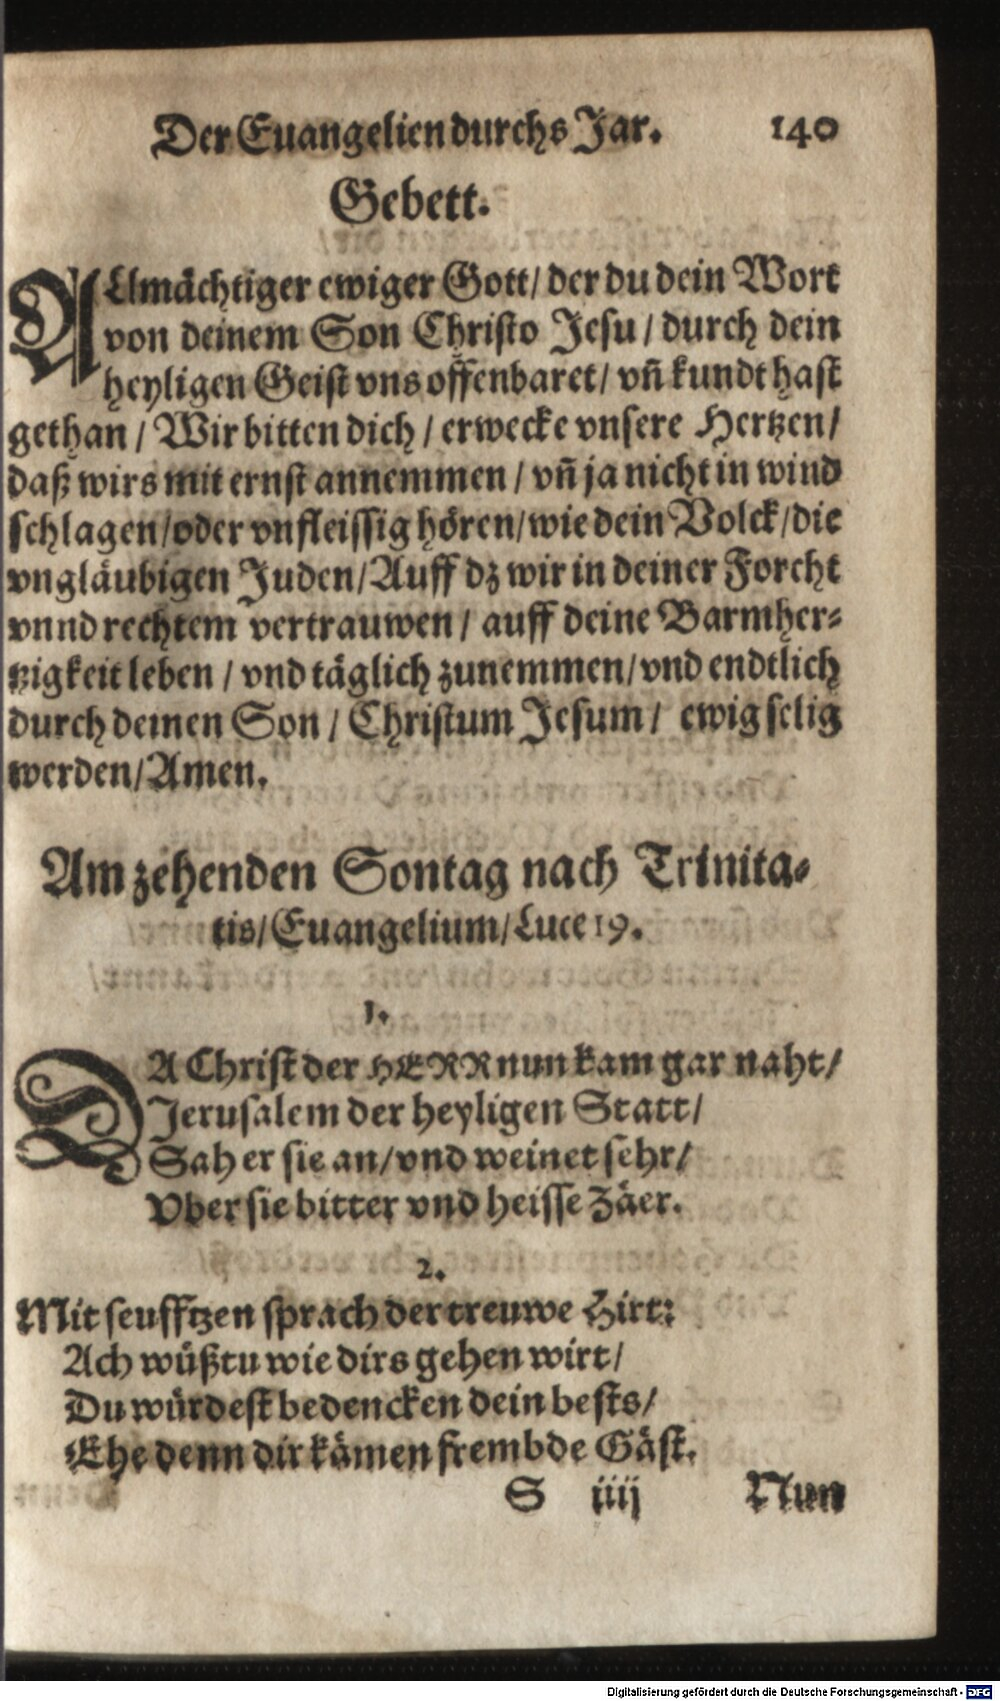 Der Euangelien durchs Jar. 140
Gebett.
ALlmächtiger ewiger Gott/ der du dein Wort
von deinem Son Christo Jesu / durch dein
heyligen Geist vns offenbaret/ vn̄ kundt hast
gethan / Wir bitten dich / erwecke vnsere Hertzen/
daß wirs mit ernst annemmen / vn̄ ja nicht in wind
schlagen/oder vnfleissig hören/wie dein Volck/die
vngläubigen Juden/Auff dz wir in deiner Forcht
vnnd rechtem vertrauwen / auff deine Barmher-
tzigkeit leben / vnd täglich zunemmen/vnd endtlich
durch deinen Son / Christum Jesum / ewig selig
werden/Amen.
Am zehenden Sontag nach Trinita-
tis/Euangelium/Luce 19.
1.
DA Christ der HERR nun kam gar naht/
Jerusalem der heyligen Statt/
Sah er sie an/vnd weinet sehr/
Vber sie bitter vnd heisse Zäer.
2.
Mit seufftzen sprach der treuwe Hirt:
Ach wüßtu wie dirs gehen wirt/
Du würdest bedencken dein bests/
Ehe denn dir kämen frembde Gäst.
S iiij Nun
Digitalisierung gefördert durch die Deutsche Forschungsgemeinschaft - DFG